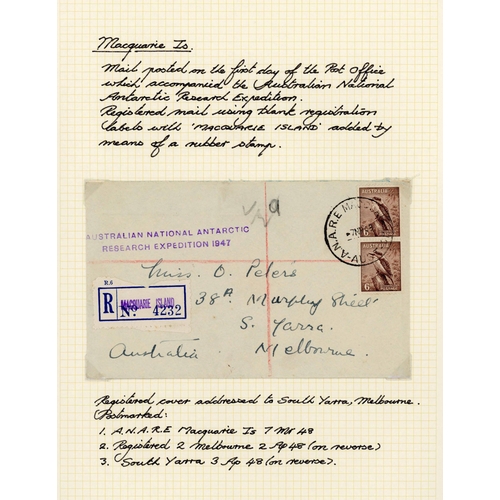 Macquarie Is.
Mail posted on the first day of the Post Office
which accompanied the Australian National
Antarctic Research Expedition.
Registered mail using blank registration
labels with 'MACQUARIE ISLAND' added by
means of a rubber stamp.
AUSTRALIAN NATIONAL ANTARCTIC
RESEARCH EXPEDITION 1947
A.N.A.R.E MACQUARIE
AUSTRALIA
6D
AUSTRALIA
6D
R.6
R
MACQUARIE ISLAND
No 4232
Miss O. Peters
38A Murphy Street
S. Yarra.
Australia Melbourne.
Registered cover addressed to South Yarra, Melbourne.
Postmarked:
1. A.N.A.R.E Macquarie Is 7 Mr 48
2. Registered 2 Melbourne 2 Ap 48 (on reverse)
3. South Yarra 3 Ap 48 (on reverse).